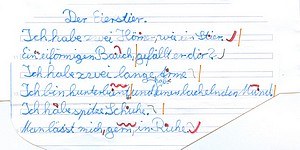 Der Eierstier.
Ich habe zwei Hörner wie ein Stier.
Ein eiförmigen Bauch gefällt er dir?
Ich habe zwei lange Arme
Ich bin hunterbunt und keinen lachenden Mund
Ich habe spitze Schuhe.
Man lässt mich gern in Ruhe.